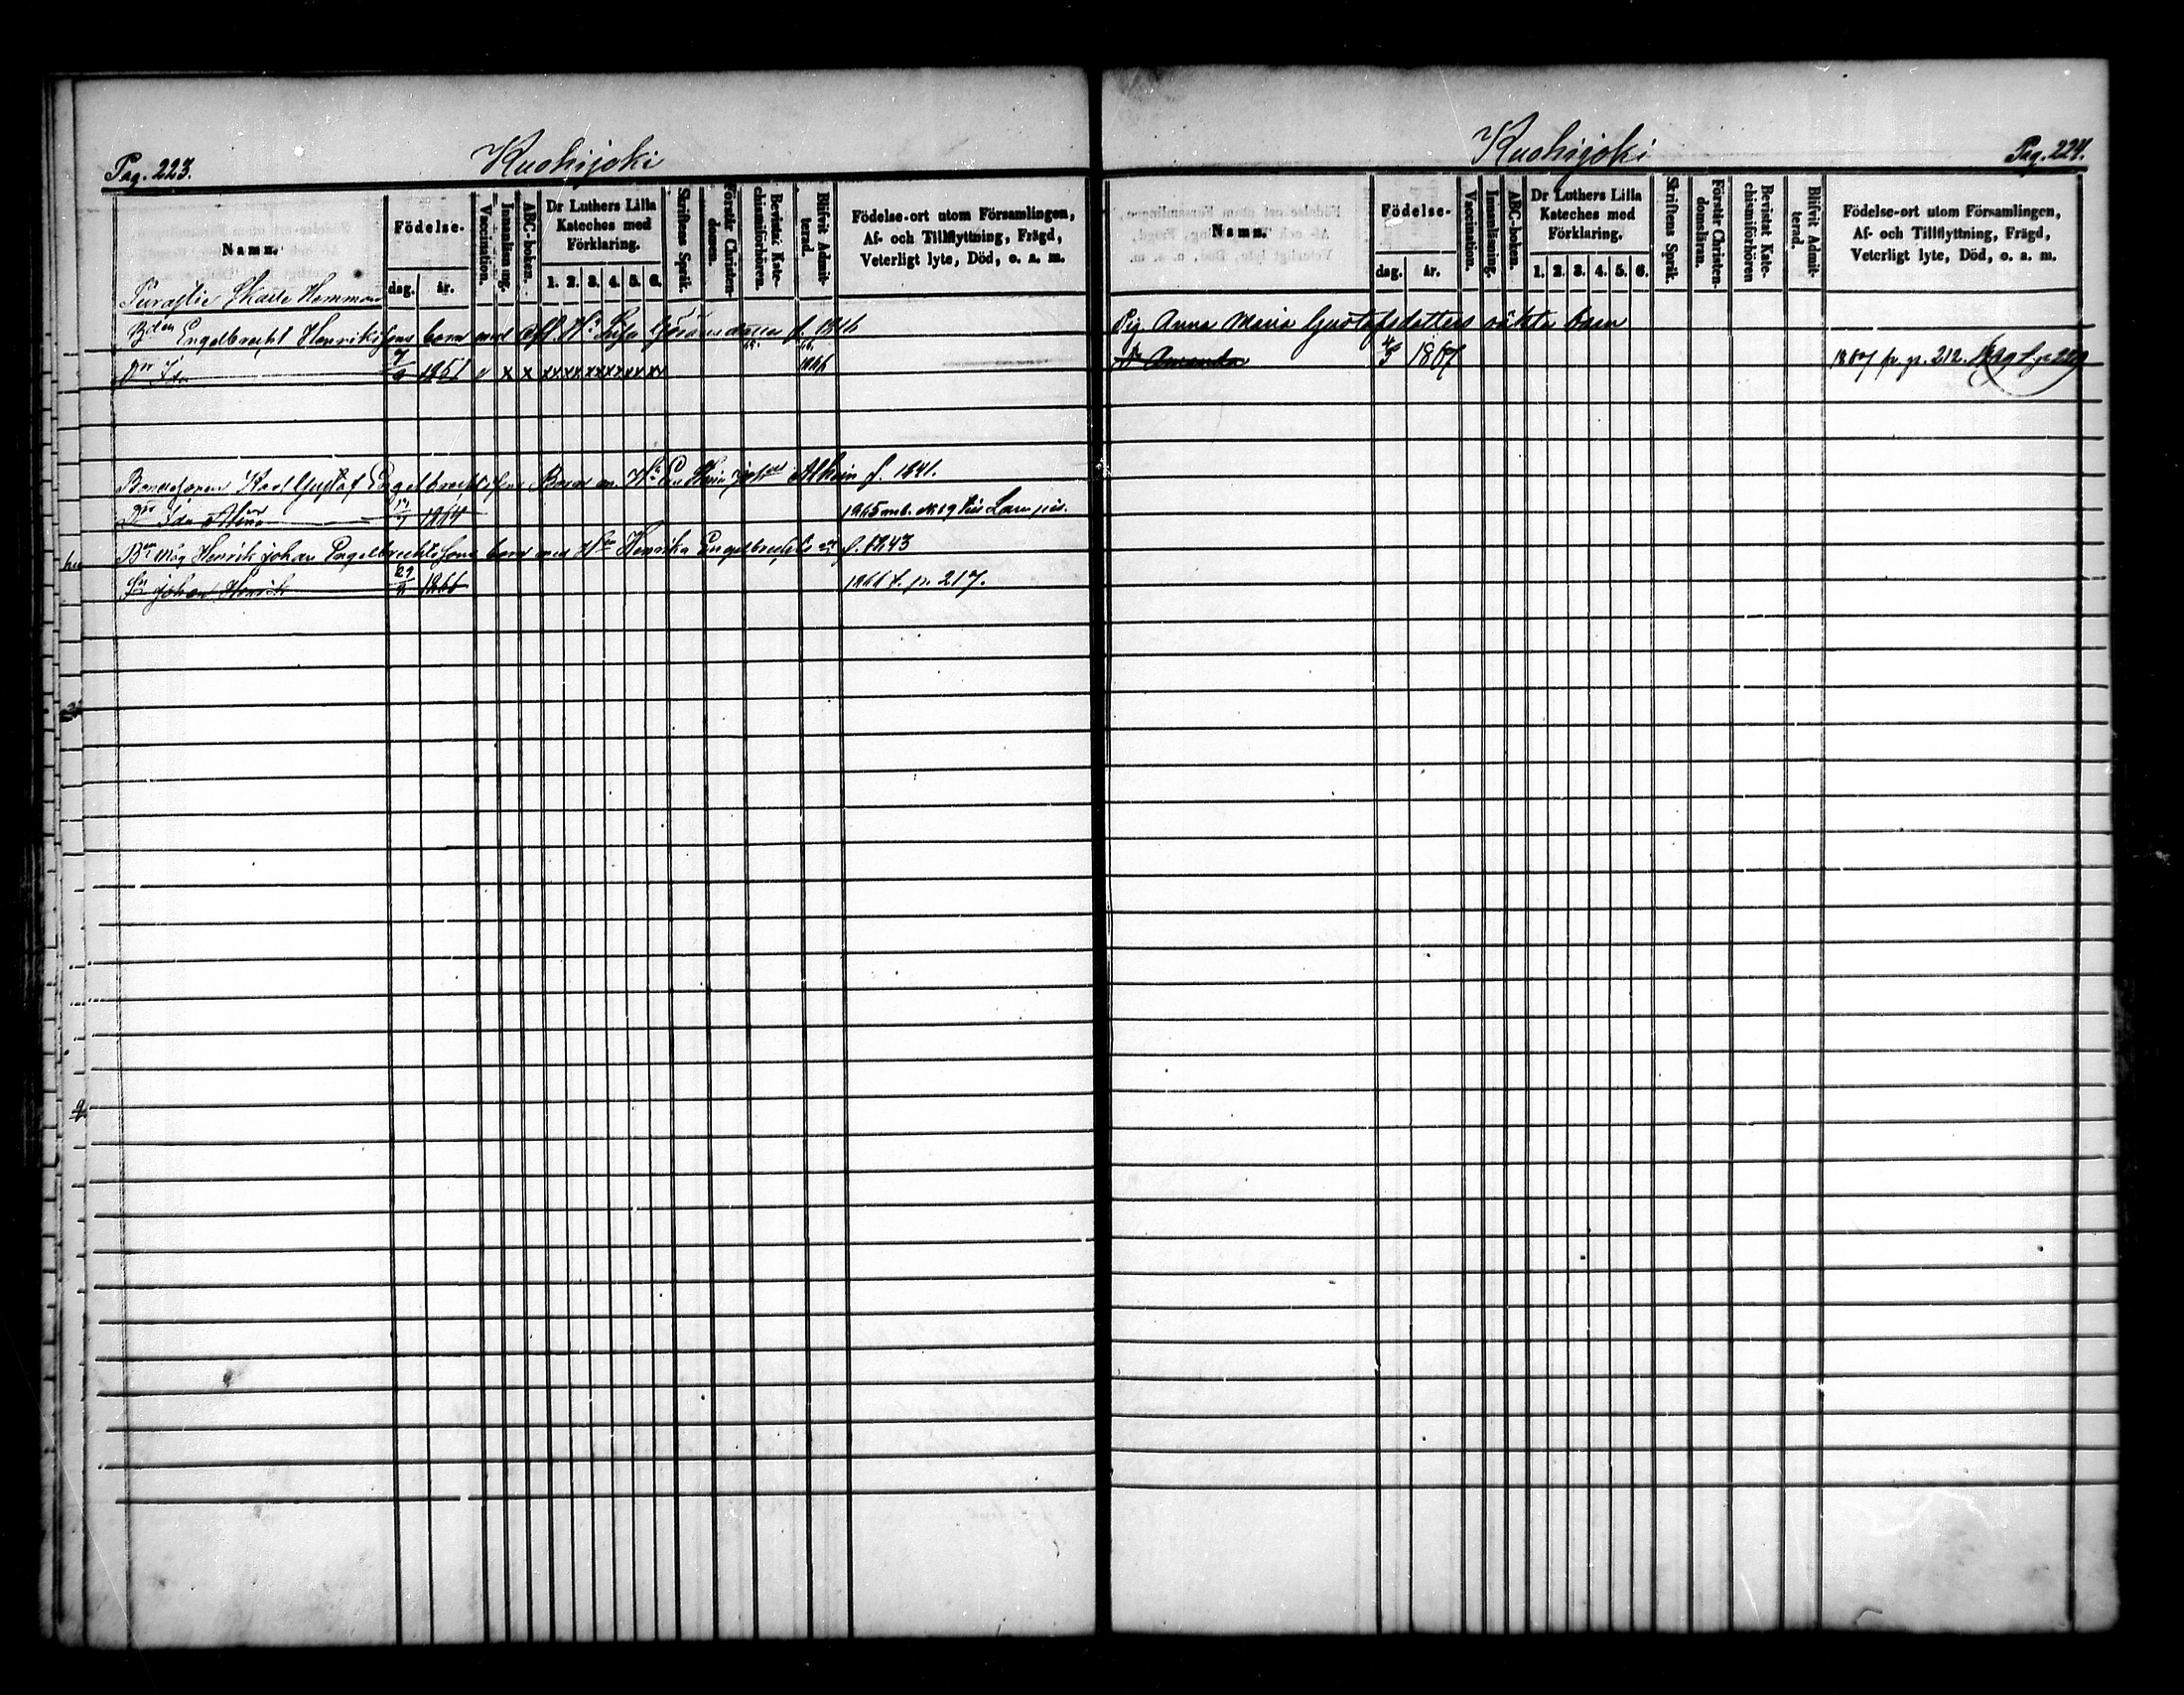 Pag. 223.
Kuohijoki
Namn.
Födelse-
dag.
år.
Vaccination.
Innanläsning.
ABC-boken.
Dr Luthers Lilla
Kateches med
Förklaring.
1. 2. 3. 4. 5. 6.
Skriftens Språk.
Förstår Christen-
domen.
Bevistat Kate-
chismiförhören.
Blifvit Admit-
terad.
Födelse-ort utom Församlingen,
Af- och Tillflyttning, Frägd,
Veterligt lyte, Död, o. s. m.
Skatte Hemman
Engelbrecht Henrikssons barn med f. 1816
Dr Ida 1851 x x xx xx xx xx xx xx 1866
Bondesonen Karl Gustaf Engelbrechtssons Barn m. f. 1841.
Dr Ida 1864 1865
Måg Henrik Johan Engelbrechtssons barn med Henrika Engelbrechts f. 1843
Sn Johan Henrik 29 1866 1866 t. p. 217.
Pag. 224.
Kuohijoki
Namn.
Födelse-
dag.
år.
Vaccination.
Innanläsning.
ABC-boken.
Dr Luthers Lilla
Kateches med
Förklaring.
1. 2. 3. 4. 5. 6.
Skriftens Språk.
Förstår Christen-
domsläran.
Bevistat Kate-
chismiförhören
Blifvit Admit-
terad.
Födelse-ort utom Församlingen,
Af- och Tillflyttning, Frägd,
Veterligt lyte, Död, o. s. m.
Pig Anna Maria Gustafsdotters oäkta barn
Amanda 1867 1867 fr. p. 212.